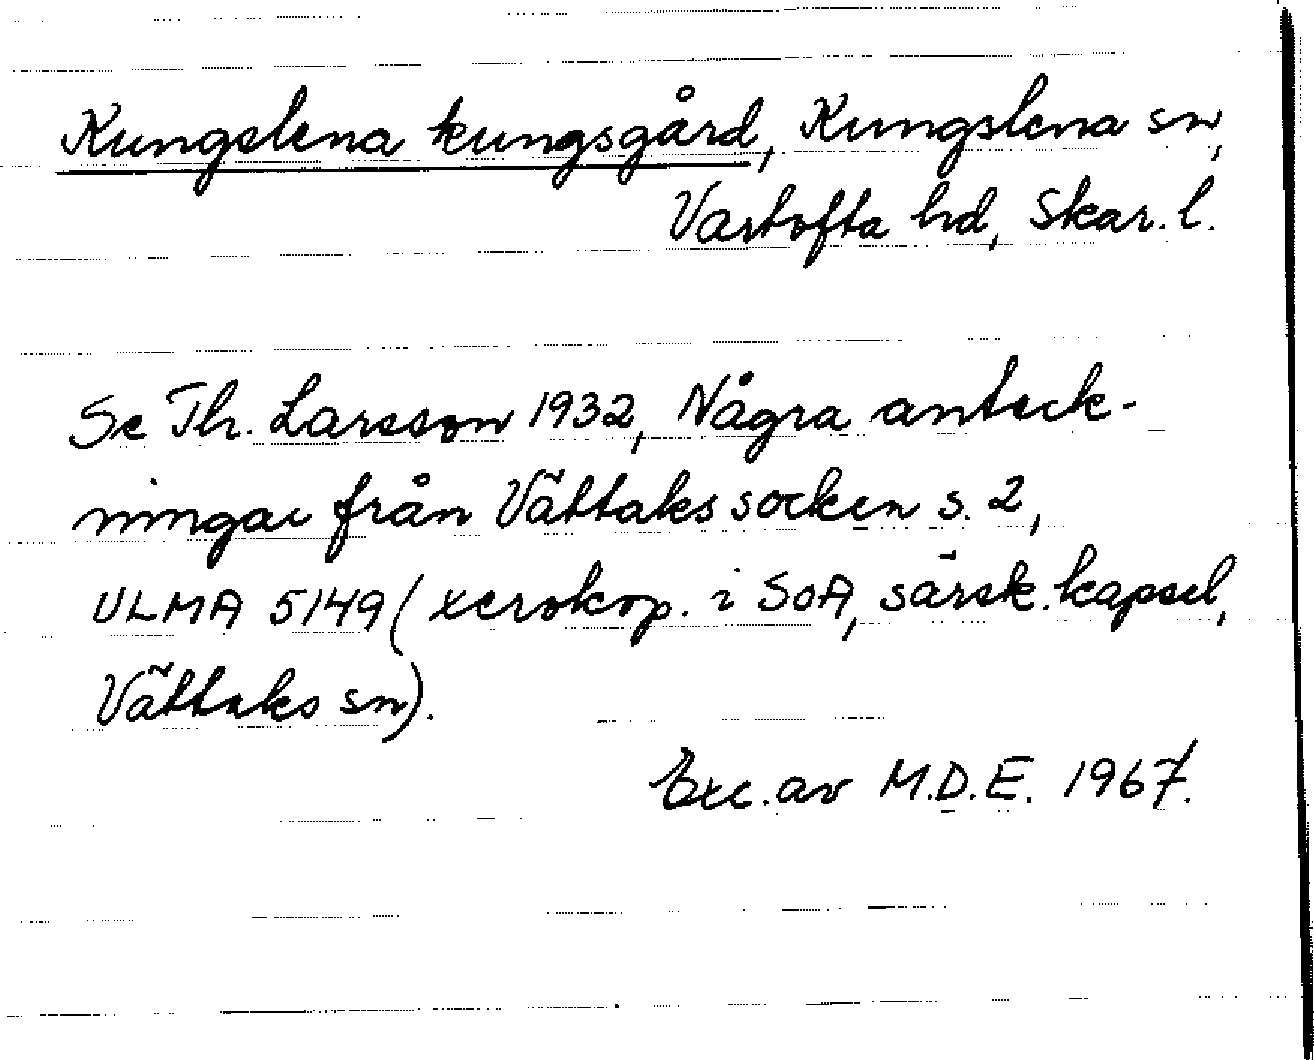 Kungslena kungsgård, Kungslena sn,
Vartofta hd, Skar. l.
Se Th. Larsson 1932, Några anteck-
ningar från Vättaks socken s. 2,
ULMA 5149 (xerokop. i SOA, särsk. kapsel,
Vättaks sn).
Exc. av M.D.E. 1967.